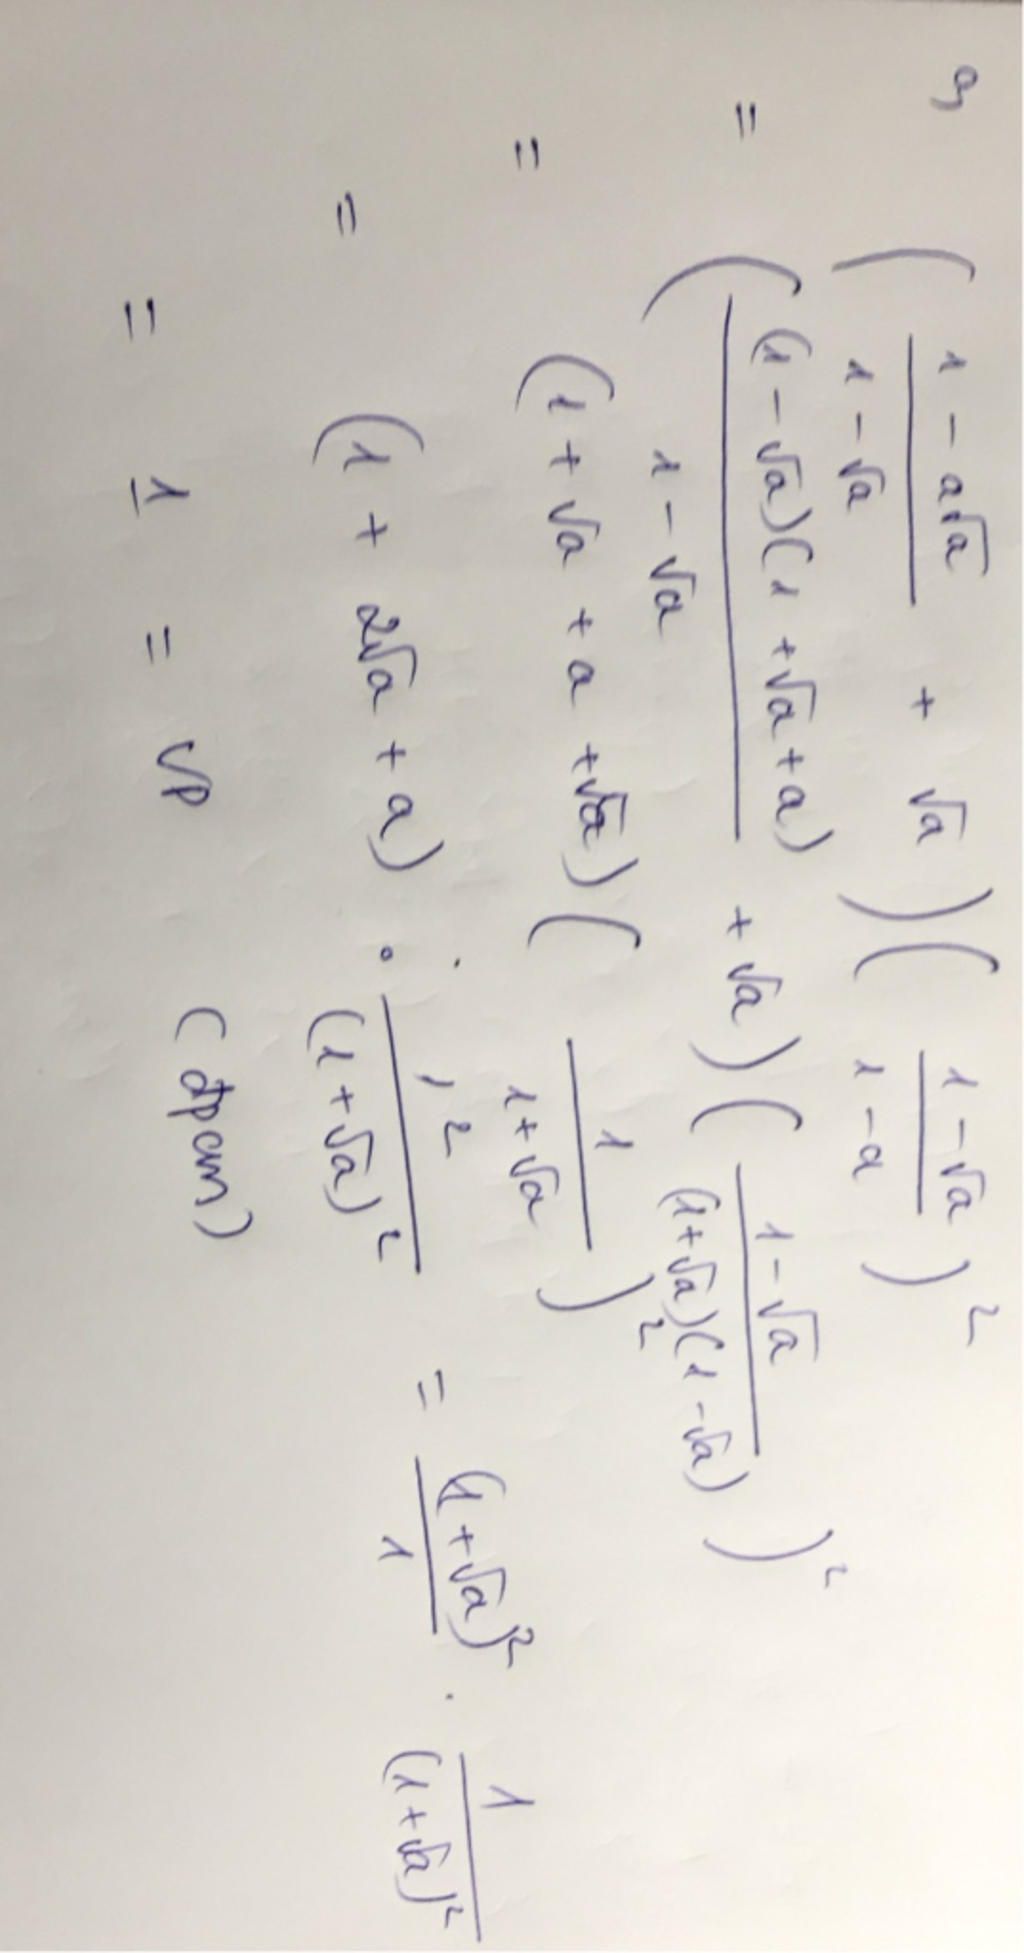 a, ( (1 - a√a)/(1 - √a) + √a ) ( (1 - √a)/(1 - a) )²
= ( (1 - √a)(1 + √a + a)/(1 - √a) + √a ) ( (1 - √a)/((1 + √a)(1 - √a)) )²
= (1 + √a + a + √a) ( 1/(1 + √a) )²
= (1 + 2√a + a) · 1²/(1 + √a)² = (1 + √a)²/1 · 1/(1 + √a)²
= 1 = VP (đpcm)